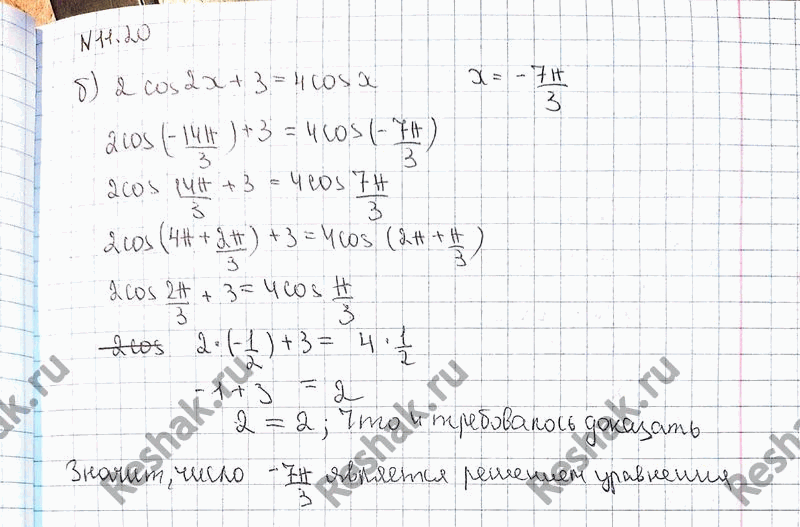 N 11.20
б) 2 cos 2x + 3 = 4 cos x    x = - 7π/3
2cos(-14π/3) + 3 = 4cos(-7π/3)
2cos 14π/3 + 3 = 4cos 7π/3
2cos(4π + 2π/3) + 3 = 4cos (2π + π/3)
2cos 2π/3 + 3 = 4cos π/3
2cos 2 · (-1/2) + 3 = 4 · 1/2
-1 + 3 = 2
2 = 2 ; Что и требовалось доказать
Значит, число -7π/3 является решением уравнения
Reshak.ru
Reshak.ru
Reshak.ru
Reshak.ru